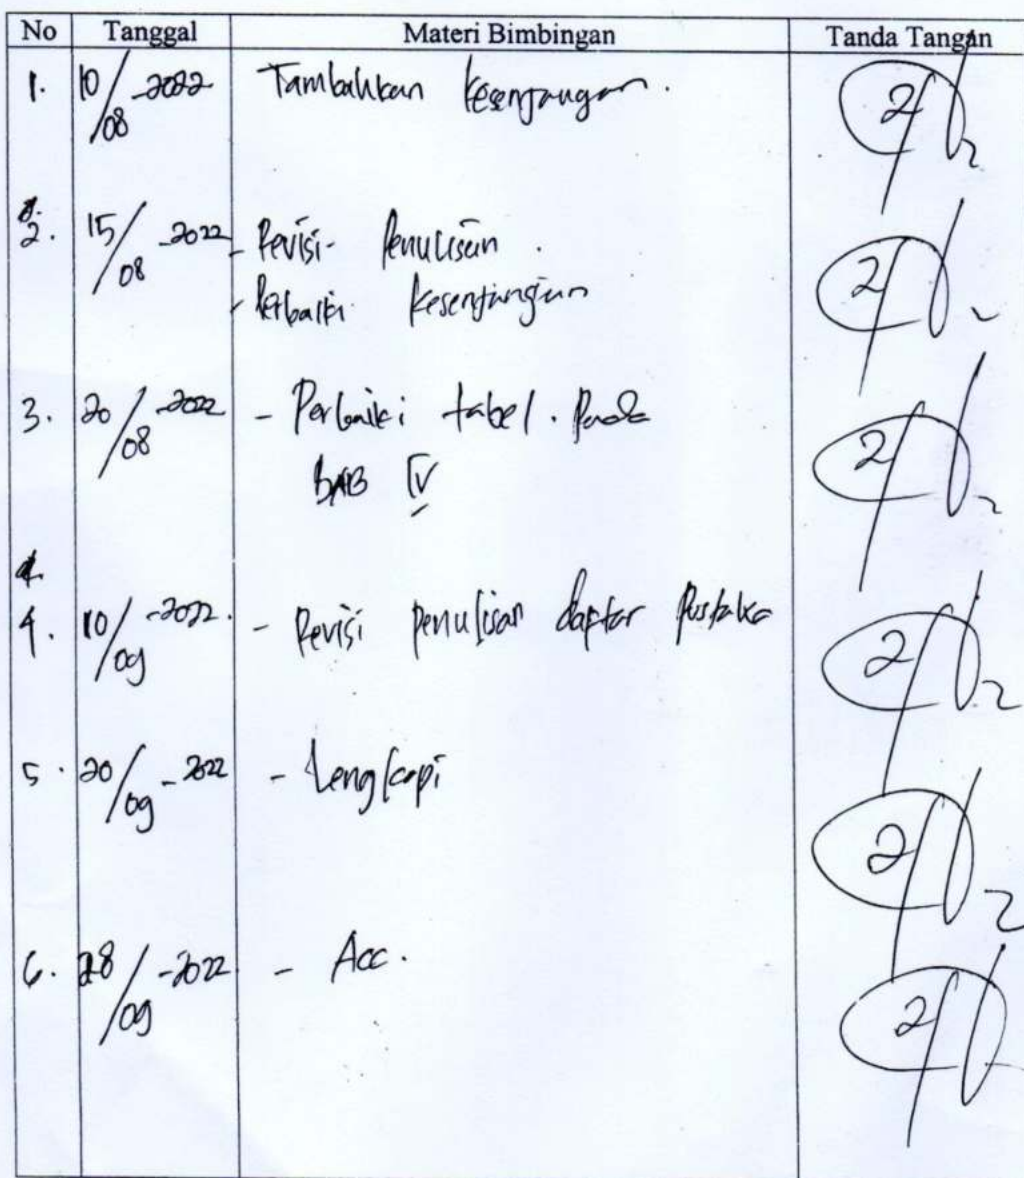 No Tanggal Materi Bimbingan Tanda Tangan
1. 10/08-2022 Tambahkan kesenjangan.
2. 15/08-2022 - Revisi penulisan.
- Perbaiki kesenjangan
3. 20/08-2022 - Perbaiki tabel. Pada
BAB IV
4. 10/09-2022. - Revisi penulisan daptar pustaka
5. 20/09-2022 - Lengkapi
6. 28/09-2022 - Acc.